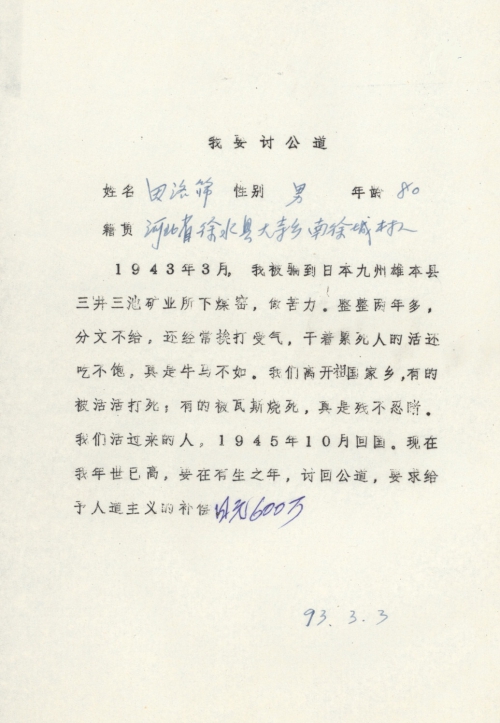 我要讨公道
姓名 田洛筛 性别 男 年龄 80
籍贯 河北省徐水县大寺乡南徐城村人
1943年3月，我被骗到日本九州雄本县
三井三池矿业所下煤窑，做苦力。整整两年多，
分文不给，还经常挨打受气，干着累死人的活还
吃不饱，真是牛马不如。我们离开祖国家乡，有的
被活活打死；有的被瓦斯烧死，真是残不忍睹。
我们活过来的人，1945年10月回国。现在
我年世已高，要在有生之年，讨回公道，要求给
予人道主义的补偿日元600万
93.3.3